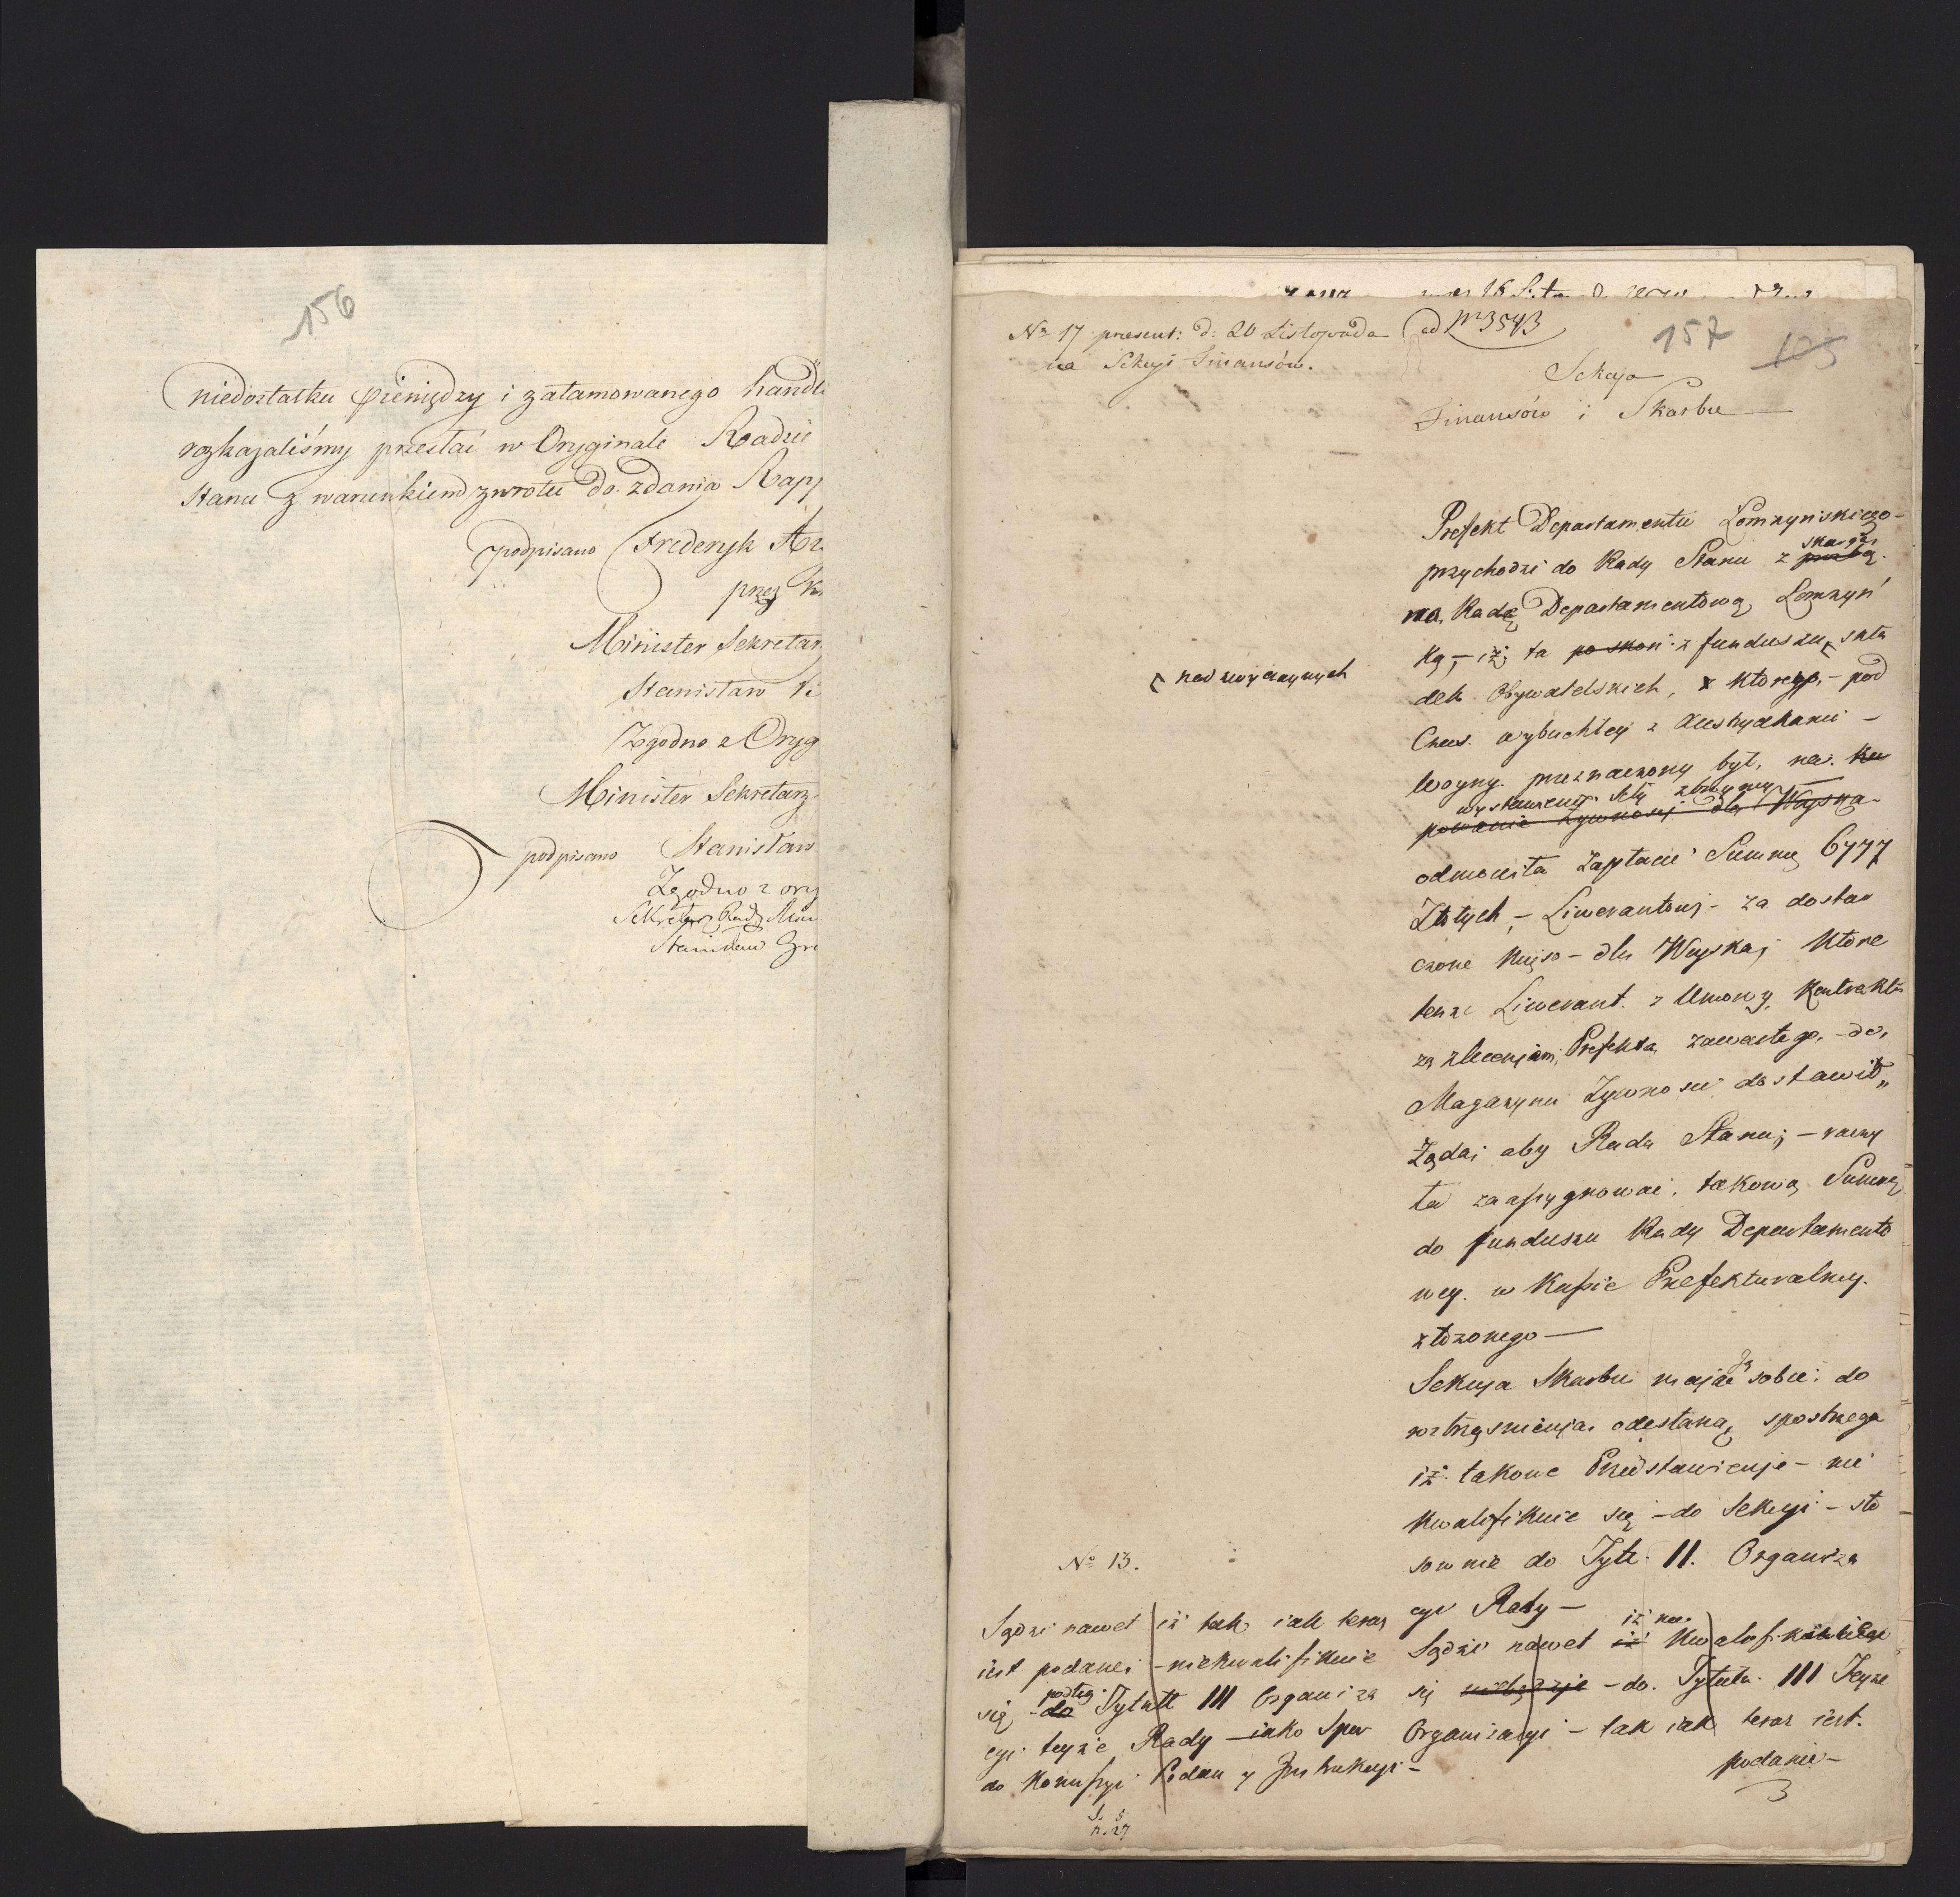 156
niedostatku pieniędzy i zatamowanego handl
rozkazaliśmy przesłać w Oryginale Radzie
Stanu z warunkiem zwrotu do zdania Rapp
podpisano Frederyk
przez
Minister Sekretarz
Stanisław
Zgodno z Oryg
Minister Sekretarz
podpisano Stanisław
Zgodno z ory
Sekretarz Rady Min
Stanisław
No 17 present: d: 20 Listopada
na Sekcyi Finansów.
ad Nr 3543
157
105
Sekcya
Finansów i Skarbu
Prefekt Departamentu Łomzynskiego
przychodzi do Rady Stanu z skargą
na Radę Departamentową Łomzyń
ką, iż ta po skoń z funduszu skła
nadzwyczaynych
dek Obywatelskich, z którego pod
Czas wybuchłey z Austryakami
Woyny przeznaczony był, na ku
wystawienie Siły zbroyney
powanie żywności dla Woyska
odmowiła zapłacić Summę 6777
Złotych Liwerantowi za dostar
czone mięso dla Woyska, które
tenże Liwerant z Umowy Kontraktu
za zleceniem Prefekta zawartego do
Magazynu Żywności dostawił
Żąda aby Rada Stanu, raczy
ła zaassygnować takową Summę
do funduszu Rady Departamento
wey w Kassie Prefekturalney
złożonego
Sekcya Skarbu mając ją sobie do
roztrząśnienia odesłaną, spostrzega
iż takowe Przedstawienie nie
kwalifikuie się do Sekcyi sto
sownie do Tytt. II. Organiza
cyi Rady
Sądzi nawet iż nie kwalifikuie
się do Tytułu III Teyże
Organizacyi tak iak teraz iest
podanie
No 13.
Sądzi nawet iż tak iak teraz
iest podanei niekwalifikuie
się podług do Tytułu III Organiza
cyi teyże Rady iako Spor
do Komissyi Podan y Instrukcyi